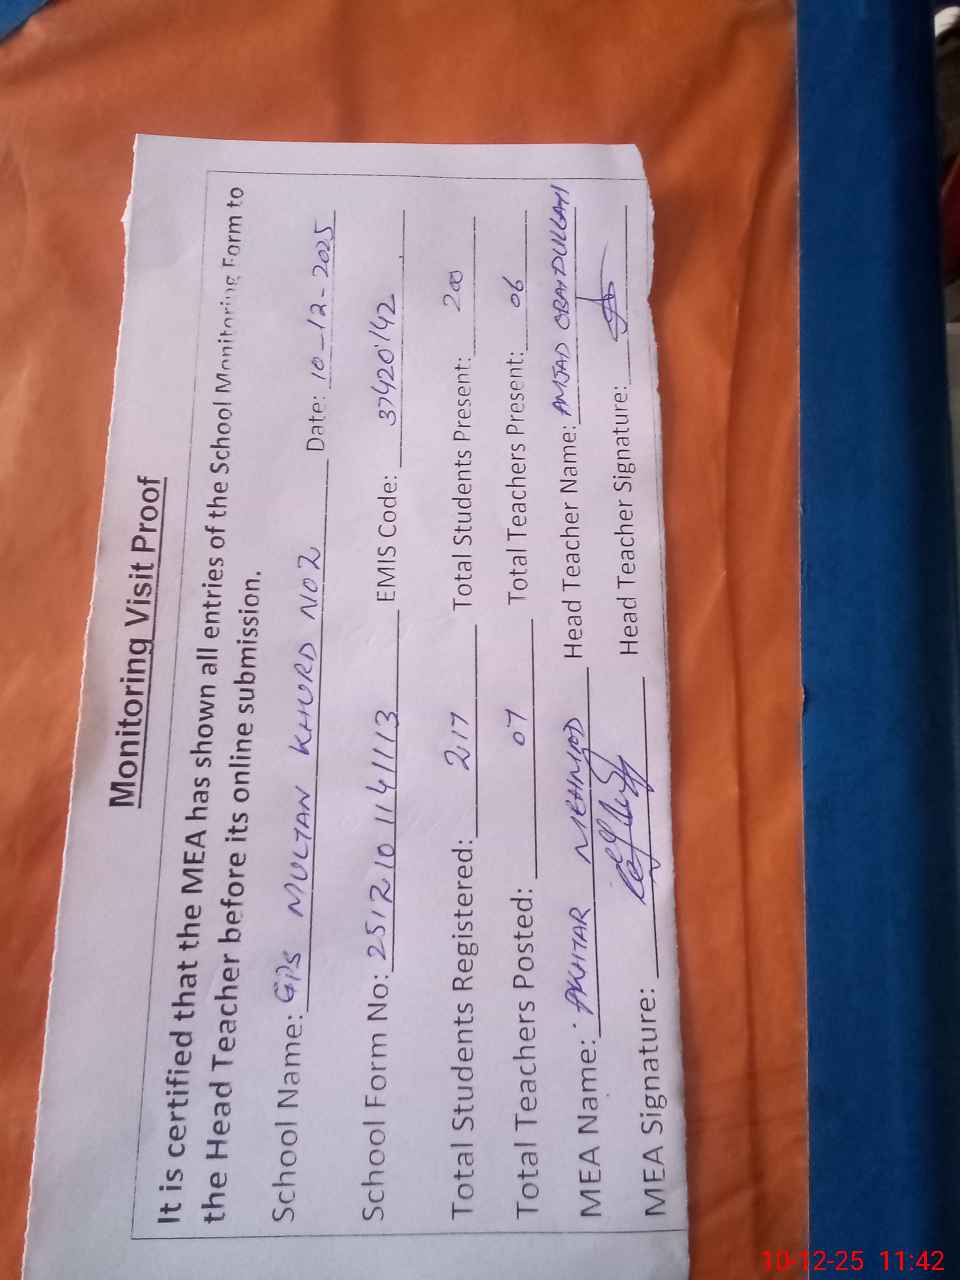 Monitoring Visit Proof
It is certified that the MEA has shown all entries of the School Monitoring Form to
the Head Teacher before its online submission.
School Name: GPS MULTAN KHURD NO 2 Date: 10-12-2025
School Form No: 2512101141113 EMIS Code: 37420142
Total Students Registered: 217 Total Students Present: 200
Total Teachers Posted: 07 Total Teachers Present: 06
MEA Name: AKHTAR MEHMOOD Head Teacher Name: AMJAD OBAIDULLAH
MEA Signature: Head Teacher Signature:
10-12-25 11:42